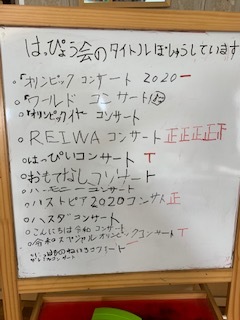 はっぴょう会のタイトルぼしゅうしています
○「オリンピック コンサート 2020 一
○「ワールド コンサート
○「オリンピックイヤー コンサート
○ REIWA コンサート 正正正正下
○ はっぴいコンサート T
○ おもてなしコンサート
○ ハーモニー コンサート
○ ハストピア2020コンサート 正
○ ハスダ コンサート
○ こんにちは令和 コンサート
○ 令和スペシャル オリンピックコンサート T
コンサート